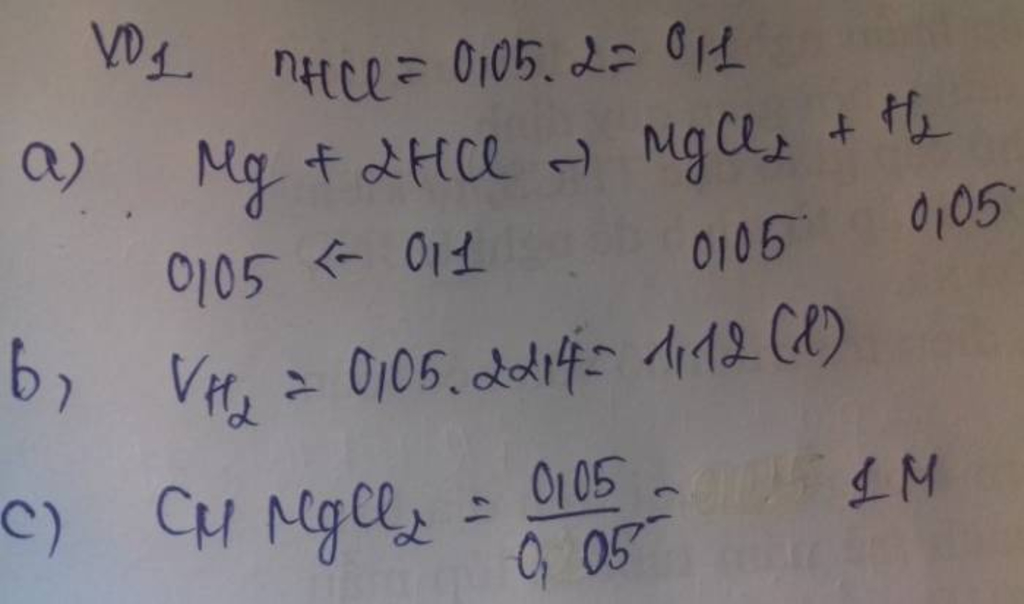 VD1 nHCl = 0,05. 2 = 0,1
a) Mg + 2HCl → MgCl₂ + H₂
0,05 ← 0,1 0,05 0,05
b, VH₂ = 0,05. 22,4 = 1,12 (l)
c) CM MgCl₂ = 0,05 / 0,05 = 1 M